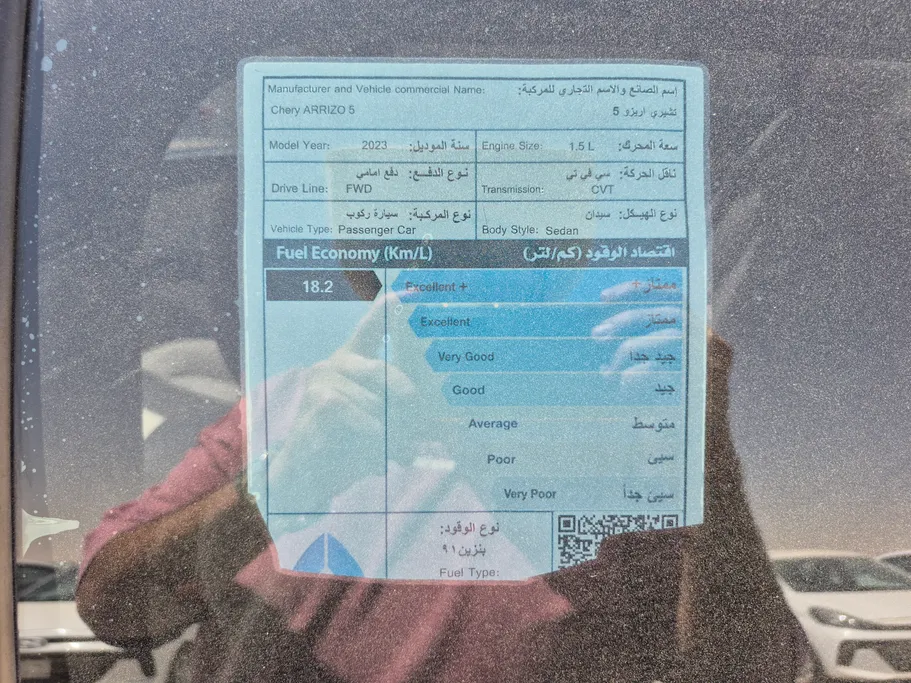 Manufacturer and Vehicle commercial Name: إسم الصانع والاسم التجاري للمركبة:
Chery ARRIZO 5 تشيري اريزو 5
Model Year: 2023 سنة الموديل: Engine Size: 1.5 L سعة المحرك:
نوع الدفع: دفع امامي ناقل الحركة: سي في تي
Drive Line: FWD Transmission: CVT
نوع المركبة: سيارة ركوب نوع الهيكل: سيدان
Vehicle Type: Passenger Car Body Style: Sedan
Fuel Economy (Km/L) اقتصاد الوقود (كم/لتر)
18.2 Excellent + ممتاز+
Excellent ممتاز
Very Good جيد جدا
Good جيد
Average متوسط
Poor سيئ
Very Poor سيئ جداً
نوع الوقود:
بنزين ٩١
Fuel Type: